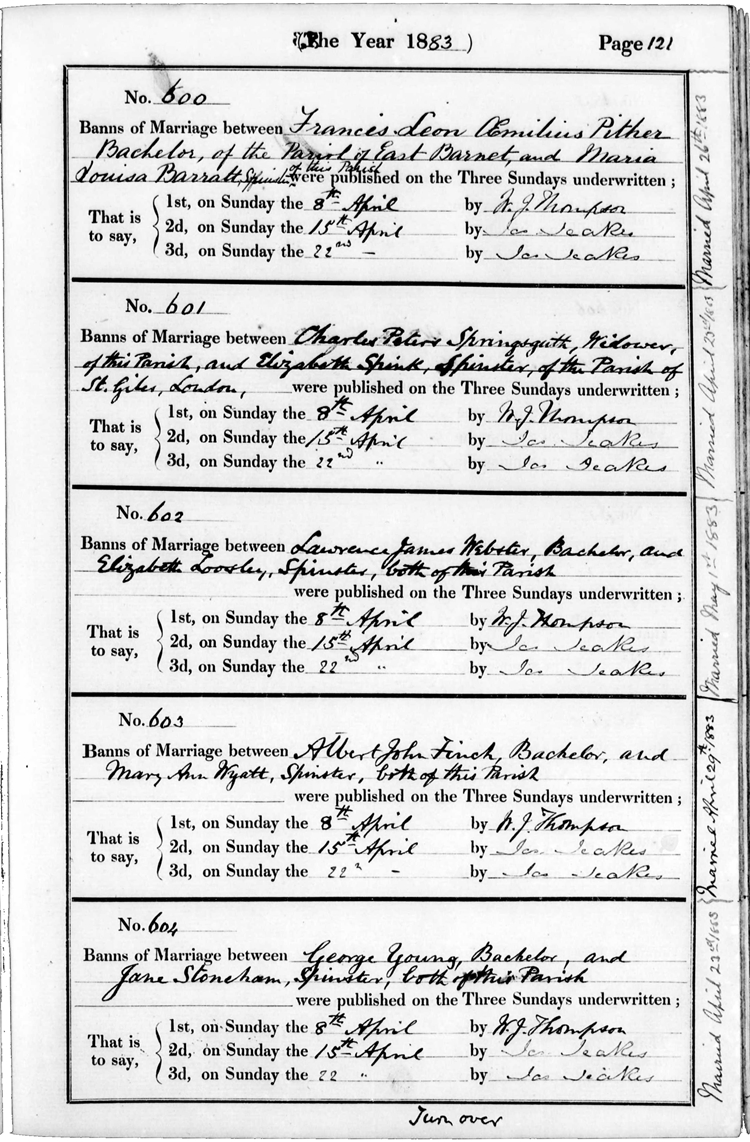 The Year 1883) Page 121
No. 600
Banns of Marriage between Francis Leon Œmilius Pither
Bachelor, of the Parish of East Barnet, and Maria
Louisa Barratt, Spinster of this Parish were published on the Three Sundays underwritten ;
That is to say,
1st, on Sunday the 8th April by W. J. Thompson
2d, on Sunday the 15th April by Jas Jeakes
3d, on Sunday the 22nd – by Jas Jeakes
Married April 26th 1883
No. 601
Banns of Marriage between Charles Peters Springsguth, Widower,
of this Parish, and Elizabeth Spink, Spinster, of the Parish of
St. Giles, London, were published on the Three Sundays underwritten ;
That is to say,
1st, on Sunday the 8th April by W. J. Thompson
2d, on Sunday the 15th April by Jas Jeakes
3d, on Sunday the 22nd " by Jas Jeakes
Married April 23rd 1883
No. 602
Banns of Marriage between Lawrence James Webster, Bachelor, and
Elizabeth Loosley, Spinster, both of this Parish
were published on the Three Sundays underwritten ;
That is to say,
1st, on Sunday the 8th April by W. J. Thompson
2d, on Sunday the 15th April by Jas Jeakes
3d, on Sunday the 22nd " by Jas Jeakes
Married May 1st 1883
No. 603
Banns of Marriage between Albert John Finch, Bachelor, and
Mary Ann Wyatt, Spinster, both of this Parish
were published on the Three Sundays underwritten ;
That is to say,
1st, on Sunday the 8th April by W. J. Thompson
2d, on Sunday the 15th April by Jas Jeakes
3d, on Sunday the 22n – by Jas Jeakes
Married April 29th 1883
No. 604
Banns of Marriage between George Young, Bachelor, and
Jane Stoneham, Spinster, both of this Parish
were published on the Three Sundays underwritten ;
That is to say,
1st, on Sunday the 8th April by W. J. Thompson
2d, on Sunday the 15th April by Jas Jeakes
3d, on Sunday the 22 " by Jas Jeakes
Married April 23rd 1883
Turn over